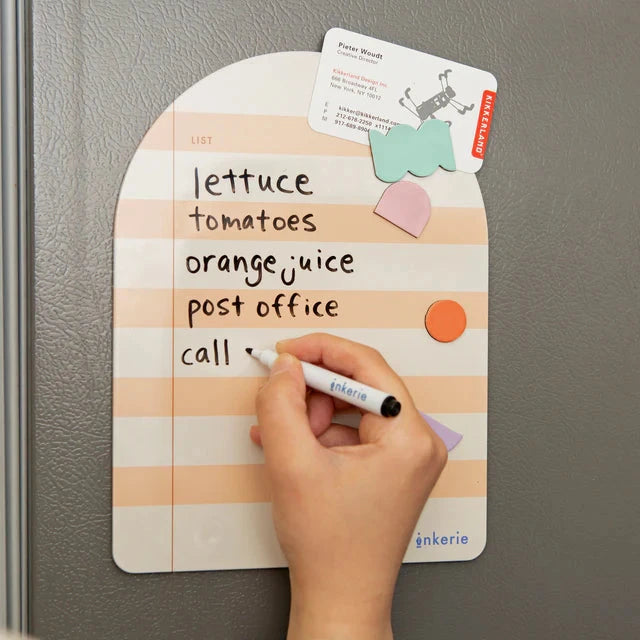 Pieter Woudt
Creative Director
Kikkerland Design Inc.
666 Broadway 4FL
New York, NY 10012
E kikker@kikkerland.com
P 212-678-2250
M
KIKKERLAND
LIST
lettuce
tomatoes
orange juice
post office
call
inkerie
inkerie